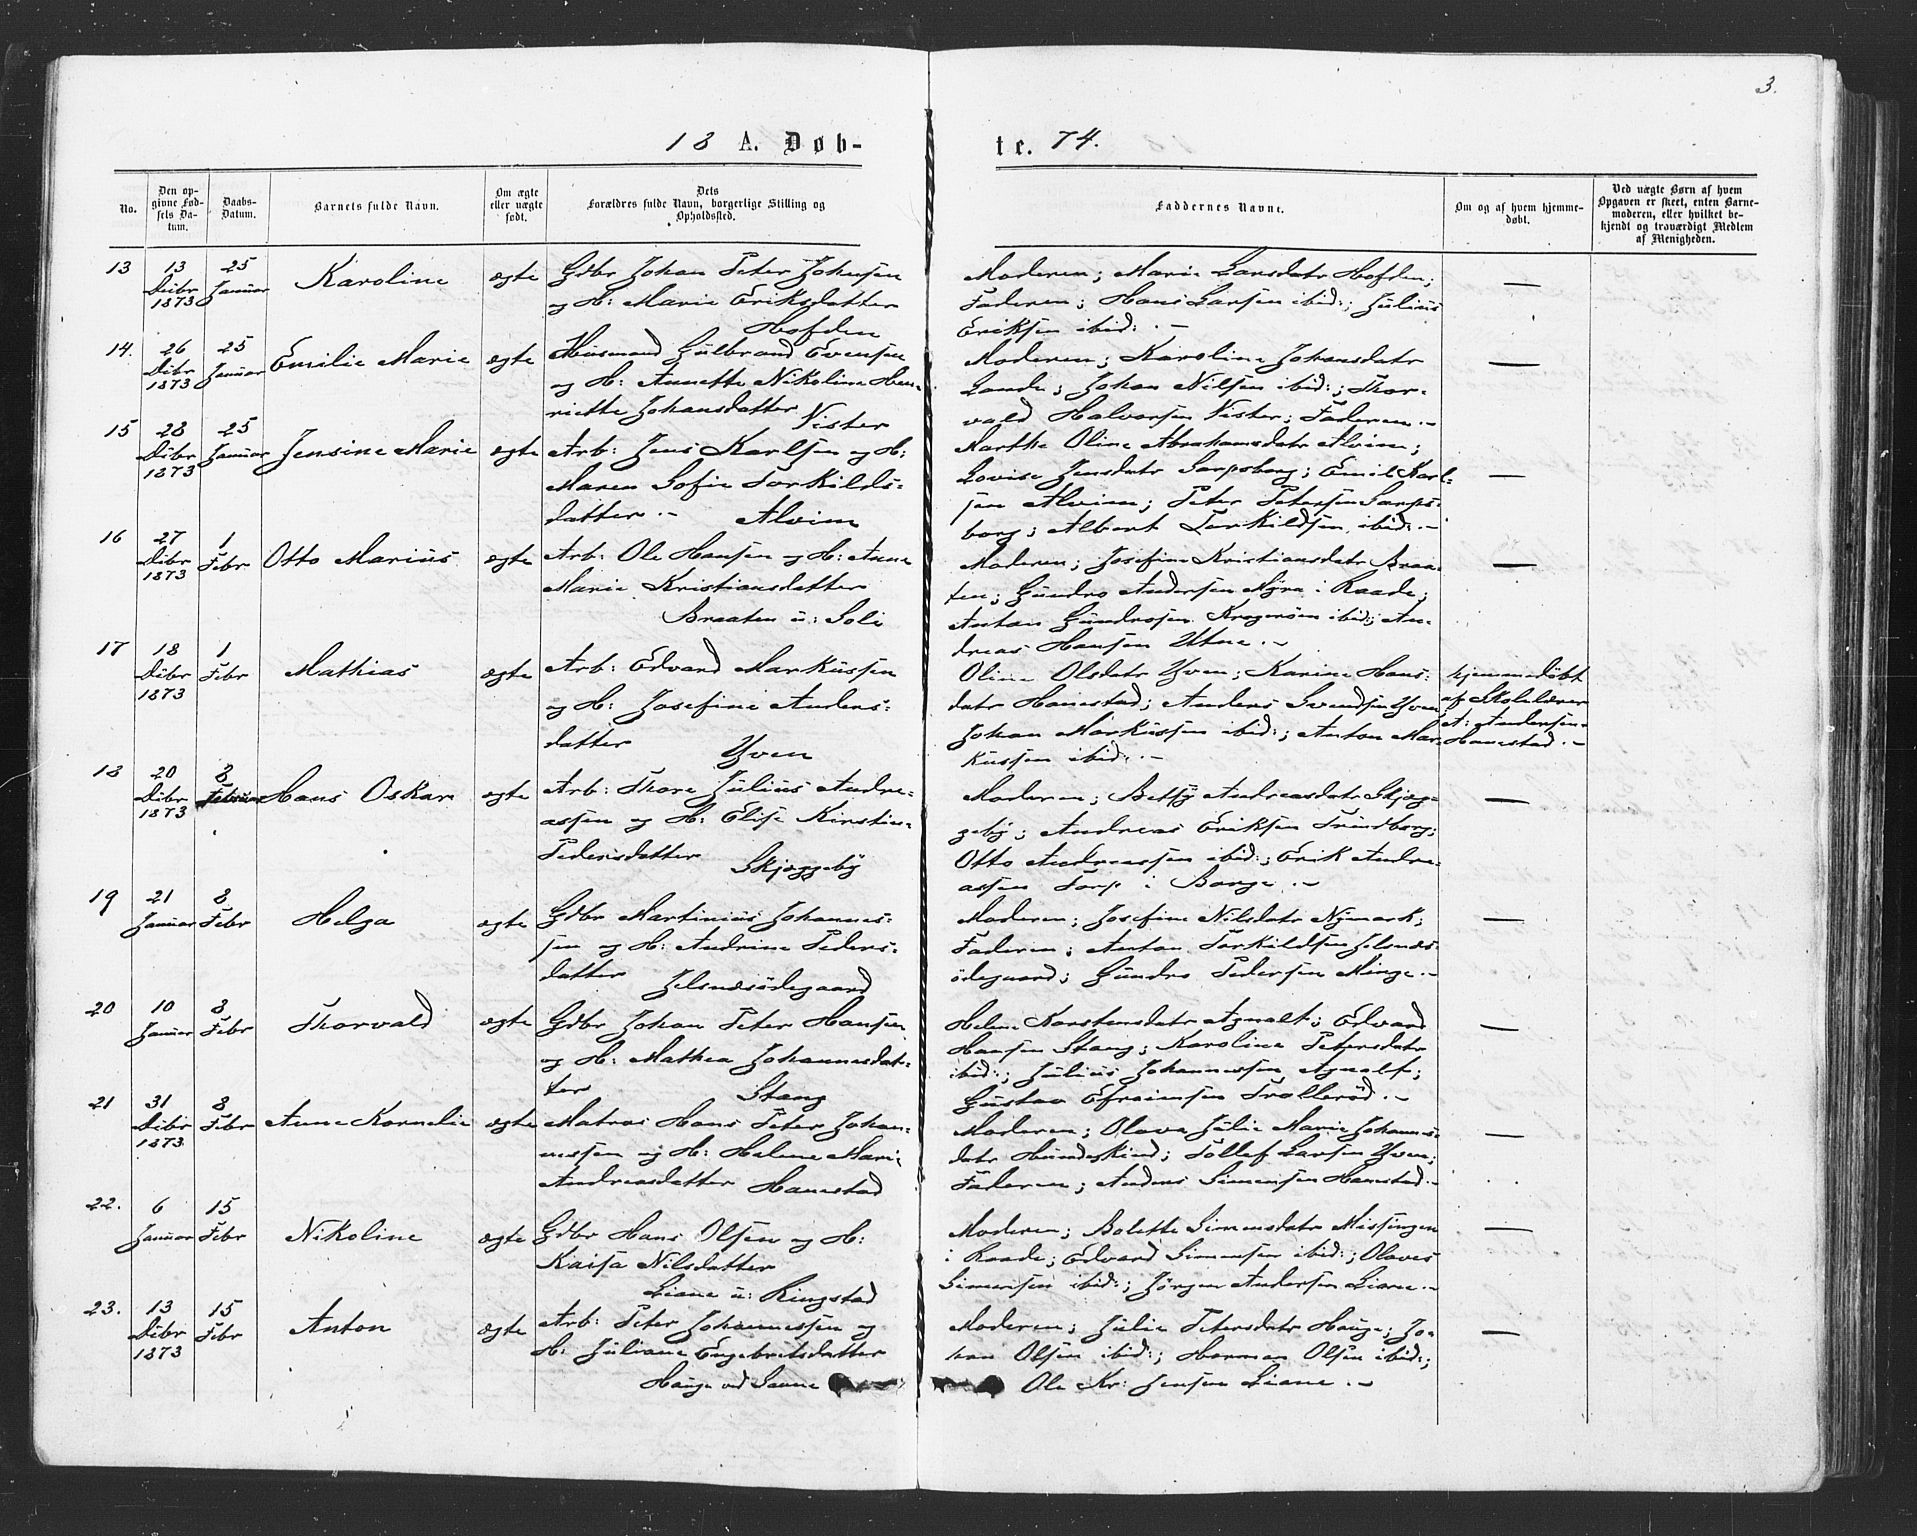 3.
18 A. Døb-
te. 74.
No.
Den op-
givne Fød-
sels Da-
tum.
Daabs-
Datum.
Barnets fulde Navn.
Om ægte
eller uægte
født.
Dets
Forældres fulde Navn, borgerlige Stilling og
Opholdssted.
Faddernes Navne.
Om og af hvem hjemme-
døbt.
Ved uægte Børn af hvem
Opgaven er skeet, enten Barne-
moderen, eller hvilket be-
kjendt og troværdigt Medlem
af Menigheden.
13
13
Debr
1873
25
Januar
Karoline
ægte
Gdbr Johan Peter Johnsen
og H: Marie Eriksdatter
Hofden
Moderen; Marie Larsdatr Hofden;
Faderen; Hans Larsen ibid:; Julius
Eriksen ibid: .-
—
14.
26
Debr
1873
25
Januar
Emilie Marie
ægte
Husmand Gulbrand Evensen
og H: Annette Nikoline Hen-
riette Johansdatter
Nister
Moderen; Karoline Johansdatr
Lande; Johan Nilsen ibid:; Thor-
vald Halvorsen Nister; Faderen.-
—
15
28
Debr
1873
25
Januar
Jensine Marie
ægte
Arb: Jens Karlsen og H:
Maren Sofie Torkilds-
datter .- Alvim
Marthe Oline Abrahamsdatr Alvim;
Lovise Jensdatr Sarpsborg; Emil Karl-
sen Alvim; Peter Petersen Sarps-
borg; Albert Torkildsen ibid: .-
—
16
27
Debr
1873
1
Febr
Otto Marius
ægte
Arb: Ole Hansen og H: Anne
Marie Kristiansdatter
Braaten u: Soli
Moderen; Josefine Kristiansdatr Braa-
ten; Gundro Andersen Myra i Raade;
Anton Gundrosen Kragerøen ibid:; An-
dreas Hansen Utne .-
—
17
18
Debr
1873
1
Febr
Mathias
ægte
Arb: Edvard Markussen
og H: Josefine Anders-
datter Yven
Oline Olsdatr Yven; Karine Hans-
datr Hanestad; Anders Svendsen Yven;
Johan Markussen ibid:; Anton Mar-
kussen ibid: .-
hjemmedøbt
af Skolelærer
A: Andersen
Hanestad .-
18
20
Debr
1873
8
Februar
Hans Oskar
ægte
Arb: Thore Julius Andre-
assen og H: Elise Kirstine
Pedersdatter Skjæggeby
Moderen; Betsy Andreasdatr Skjæg-
geby; Andreas Eriksen Trindborg;
Otto Andreassen ibid:; Erik Andre-
assen Torp i Borge .-
—
19
21
Januar
8
Febr
Helga
ægte
Gdbr Martinius Johannes-
sen og H: Andrine Peders-
datter Jelsnesødegaard
Moderen; Josefine Nilsdatr Nymark;
Faderen; Anton Torkildsen Jelsnes-
ødegaard; Gundro Pedersen Minge .-
—
20
10
Januar
8
Febr
Thorvald
ægte
Gdbr Johan Peter Hansen
og H: Mathea Johannesdat-
ter Stang
Helene Karstensdatr Agnalt; Edvard
Hansen Stang; Karoline Petersdatr
ibid:; Julius Johannessen Agnalt;
Gustav Efraimsen Trollerød .-
—
21
31
Debr
1873
8
Febr
Anne Kornelie
ægte
Matros Hans Peter Johan-
nessen og H: Helene Marie
Andreasdatter Hanestad
Moderen; Olava Julie Marie Johannes-
datr Hundskind; Tollef Larsen Yven;
Faderen; Anders Simensen Hanestad .-
—
22.
6
Januar
15
Febr
Nikoline
ægte
Gdbr Hans Olsen og H:
Kaisa Nilsdatter
Liane u: Ringstad
Moderen; Bolette Simensdatr Missingen
i Raade; Edvard Simensen ibid:; Olaves
Simensen ibid:; Jørgen Andersen Liane .-
—
23.
13
Debr
1873
15
Febr
Anton
ægte
Arb: Peter Johannessen og
H: Juliane Engebretsdatter
Hauge ved
Moderen; Julie Petersdatr Hauge; Jo-
han Olsen ibid:; Herman Olsen ibid:;
Ole Kr: Jensen Liane .-
—